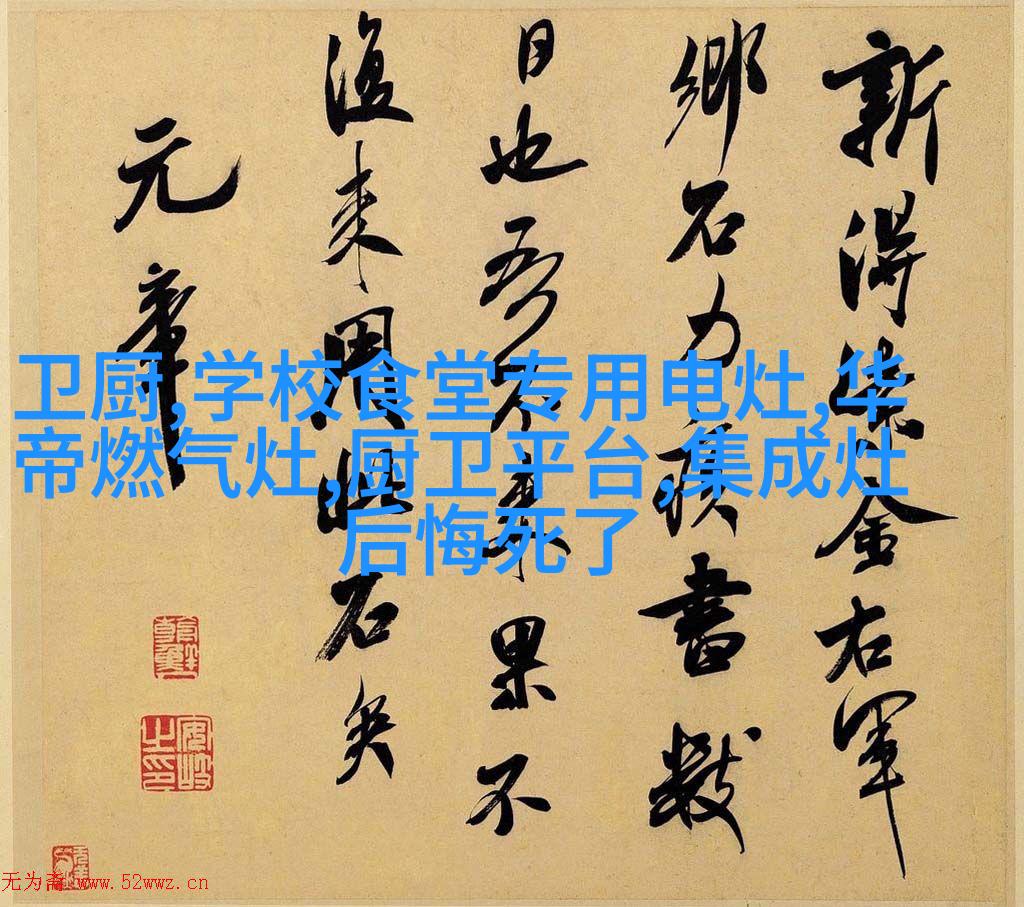 新得紫金右軍
鄉石力疾書數
日也吾不来果不
復来用此石矣
元章
卫厨,学校食堂专用电灶,华
帝燃气灶,厨卫平台,集成灶
后悔死了
安岐之印
无为斋 www.52wwz.cn